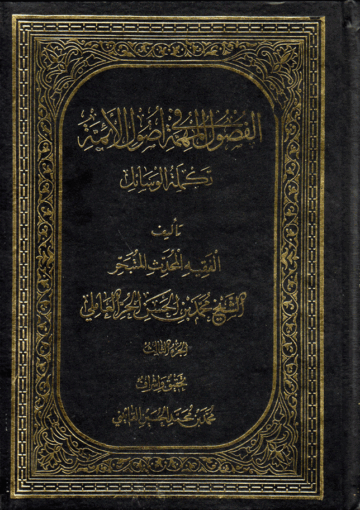 الفصول المهمة في أصول الأئمة
تكملة الوسائل
تأليف
الفقيه المحدث المتبحر
الشيخ محمد بن الحسن الحر العاملي
الجزء الثالث
تحقيق وإشراف
محمد بن محمد الحسين القائيني